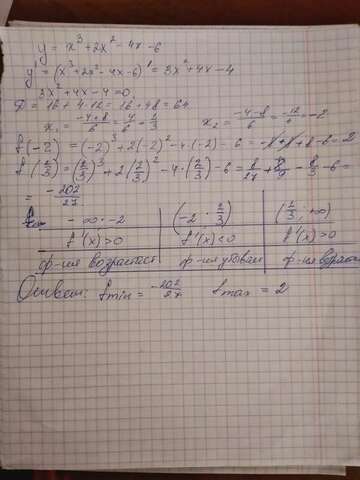 y = x³+2x²-4x-6
y' = (x³+2x²-4x-6)' = 3x²+4x-4
3x²+4x-4=0
D = 16+4·12=16+48=64
x₁ = (-4+8)/6 = 4/6 = 2/3 x₂ = (-4-8)/6 = -12/6 = -2
f(-2) = (-2)³+2(-2)²-4·(-2)-6 = -8+8+8-6=2
f(2/3) = (2/3)³+2(2/3)²-4·(2/3)-6 = 8/27+8/9-8/3-6=
= -202/27
-∞ - 2 (-2 · 2/3) (2/3; +∞)
f'(x)>0 f'(x)<0 f'(x)>0
ф-ия возрастает ф-ия убывает ф-ия возрастает
Ответ: fmin = -202/27 fmax = 2